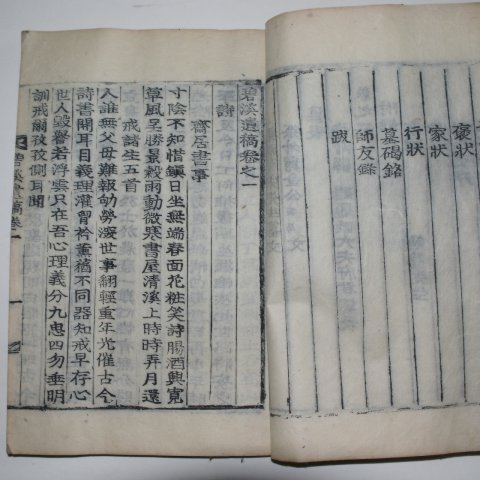 褒狀
家狀
行狀
墓碣銘
師友錄
跋
碧溪遺稿卷之一
詩
齋居書事
寸陰不知惜鎭日坐無端春面花粧笑詩腸酒興寬
草風呈勝景穀雨動微寒書屋淸溪上時時弄月還
戒諸生五首
人誰無父母難報劬勞深世事翻輕重年光催古今
詩書開耳目義理灌胷衿薰蕕不同器知戒早存心
世人毀譽若浮雲只在吾心理義分九思四勿垂明
訓戒爾孜孜側耳聞
碧溪遺稿卷一